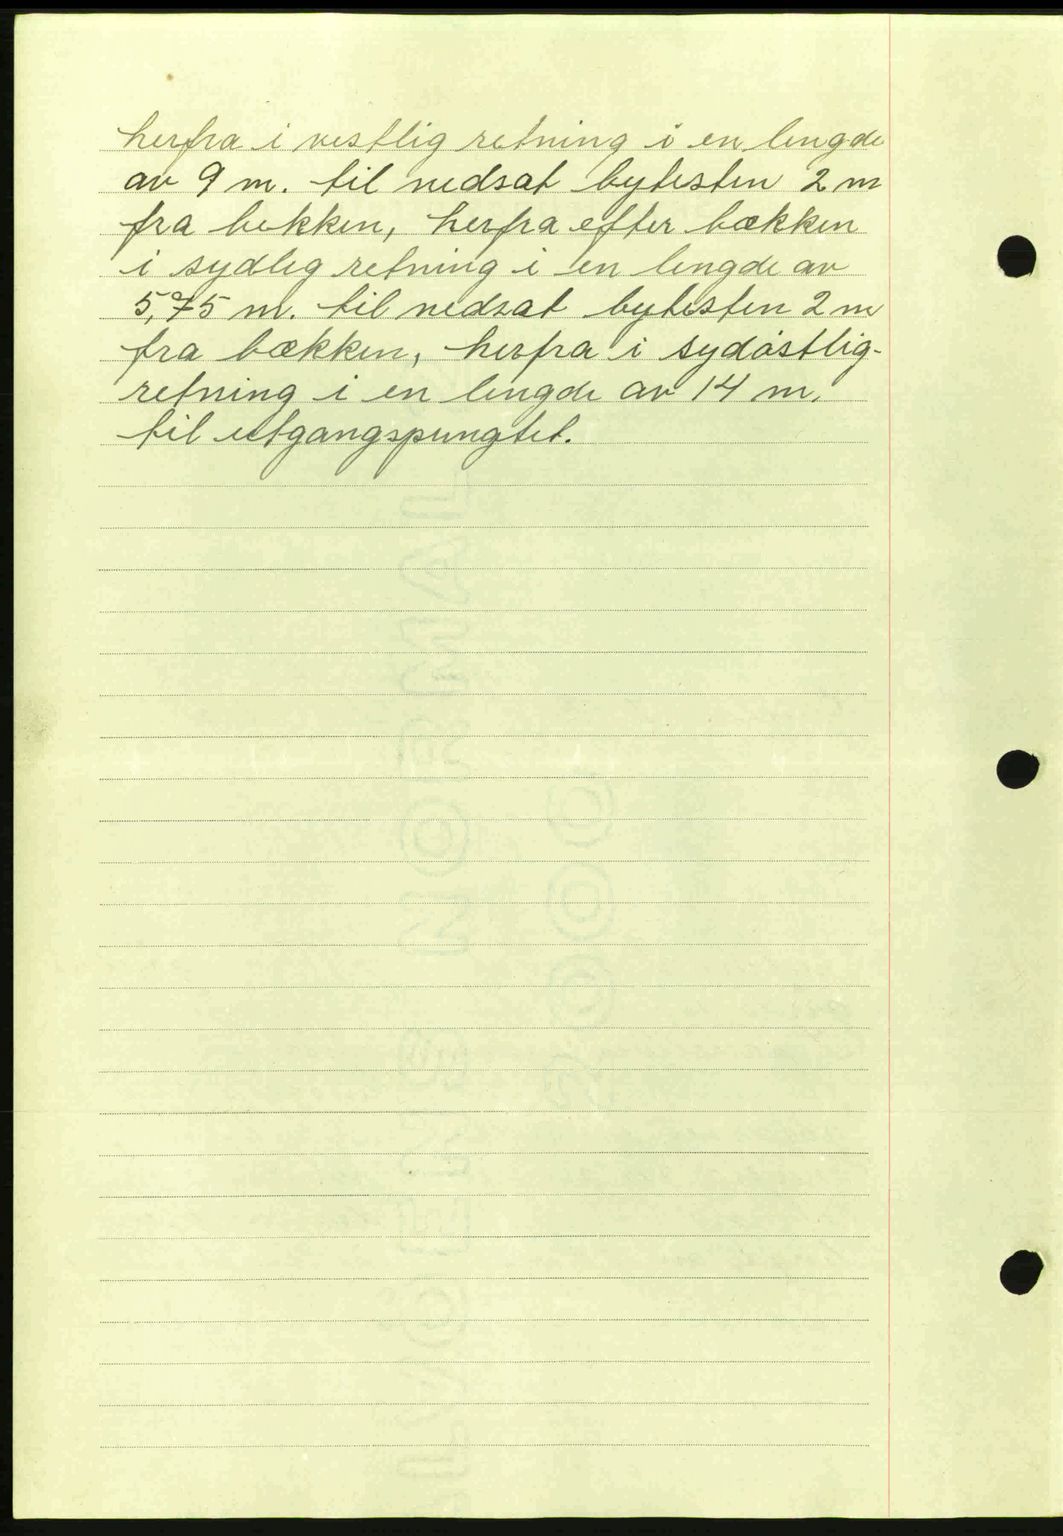 herfra i vestlig retning i en lengde
av 9 m. til nedsat bytesten 2 m
fra bekken, herfra efter bækken
i sydleg retning i en lengde av
5,75 m. til nedsat bytesten 2 m
fra bækken, herfra i sydøstlig-
retning i en lengde av 14 m.
til utgangspungtet.
NORMAL